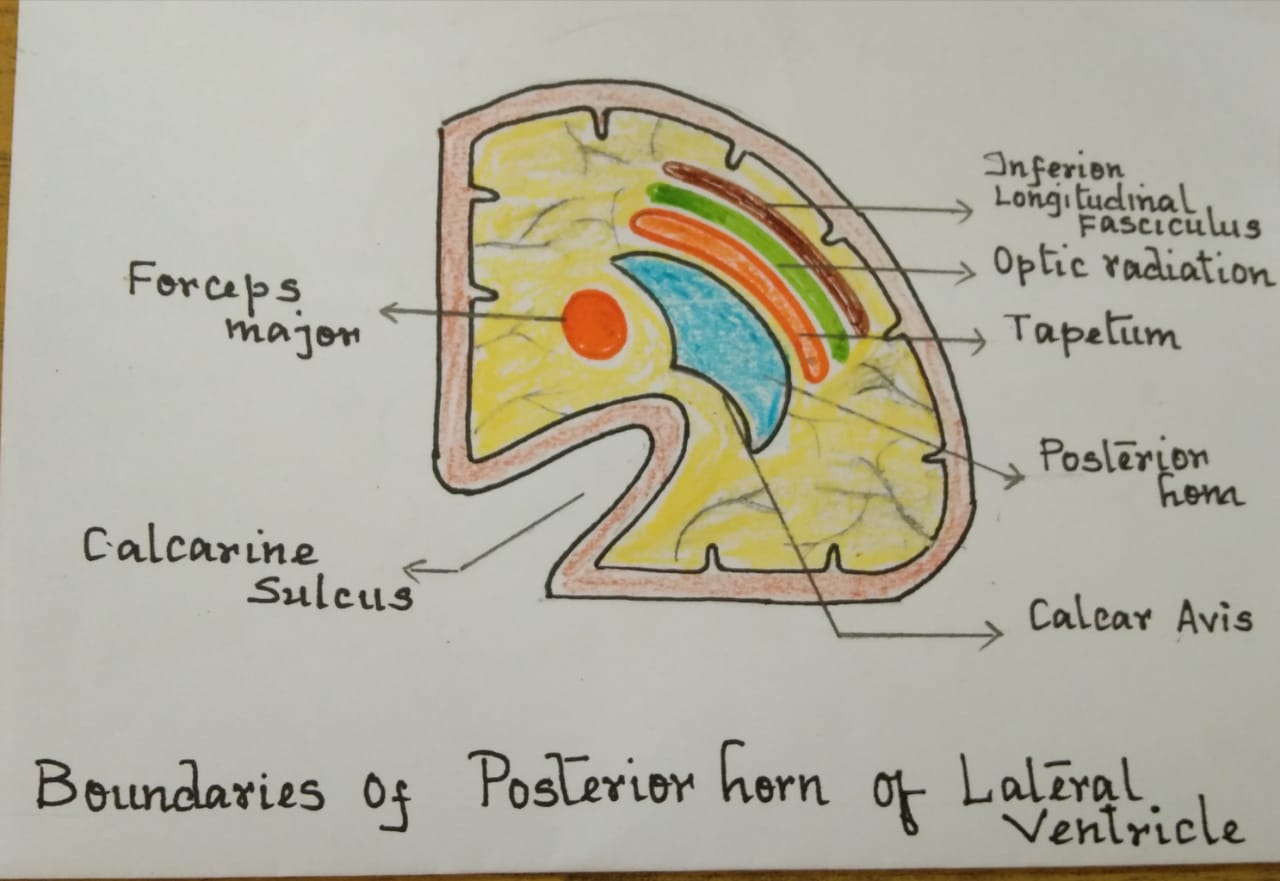 Inferior
Longitudinal
Fasciculus
Optic radiation
Tapetum
Posterior
horn
Calcar Avis
Forceps
major
Calcarine
Sulcus
Boundaries of Posterior horn of Lateral
Ventricle